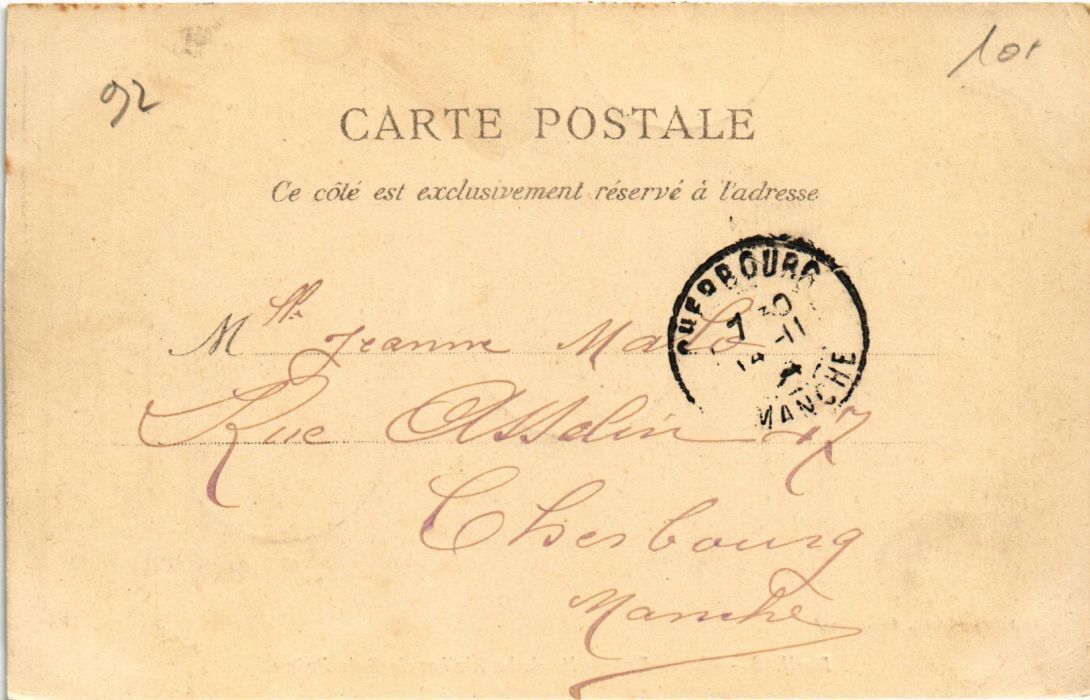 92
101
CARTE POSTALE
Ce côté est exclusivement réservé à l'adresse
CHERBOURG
7 30
14 -11
MANCHE
Mlle Jeanne Malo
Rue Asselin 47
Cherbourg
Manche